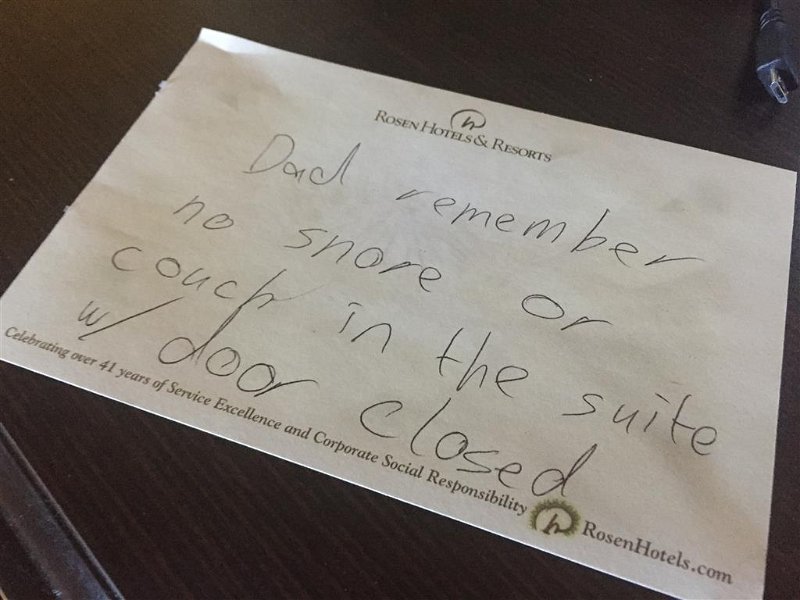 ROSEN HOTELS & RESORTS
Dad remember
no snore or
couch in the suite
w/ door closed
Celebrating over 41 years of Service Excellence and Corporate Social Responsibility
RosenHotels.com